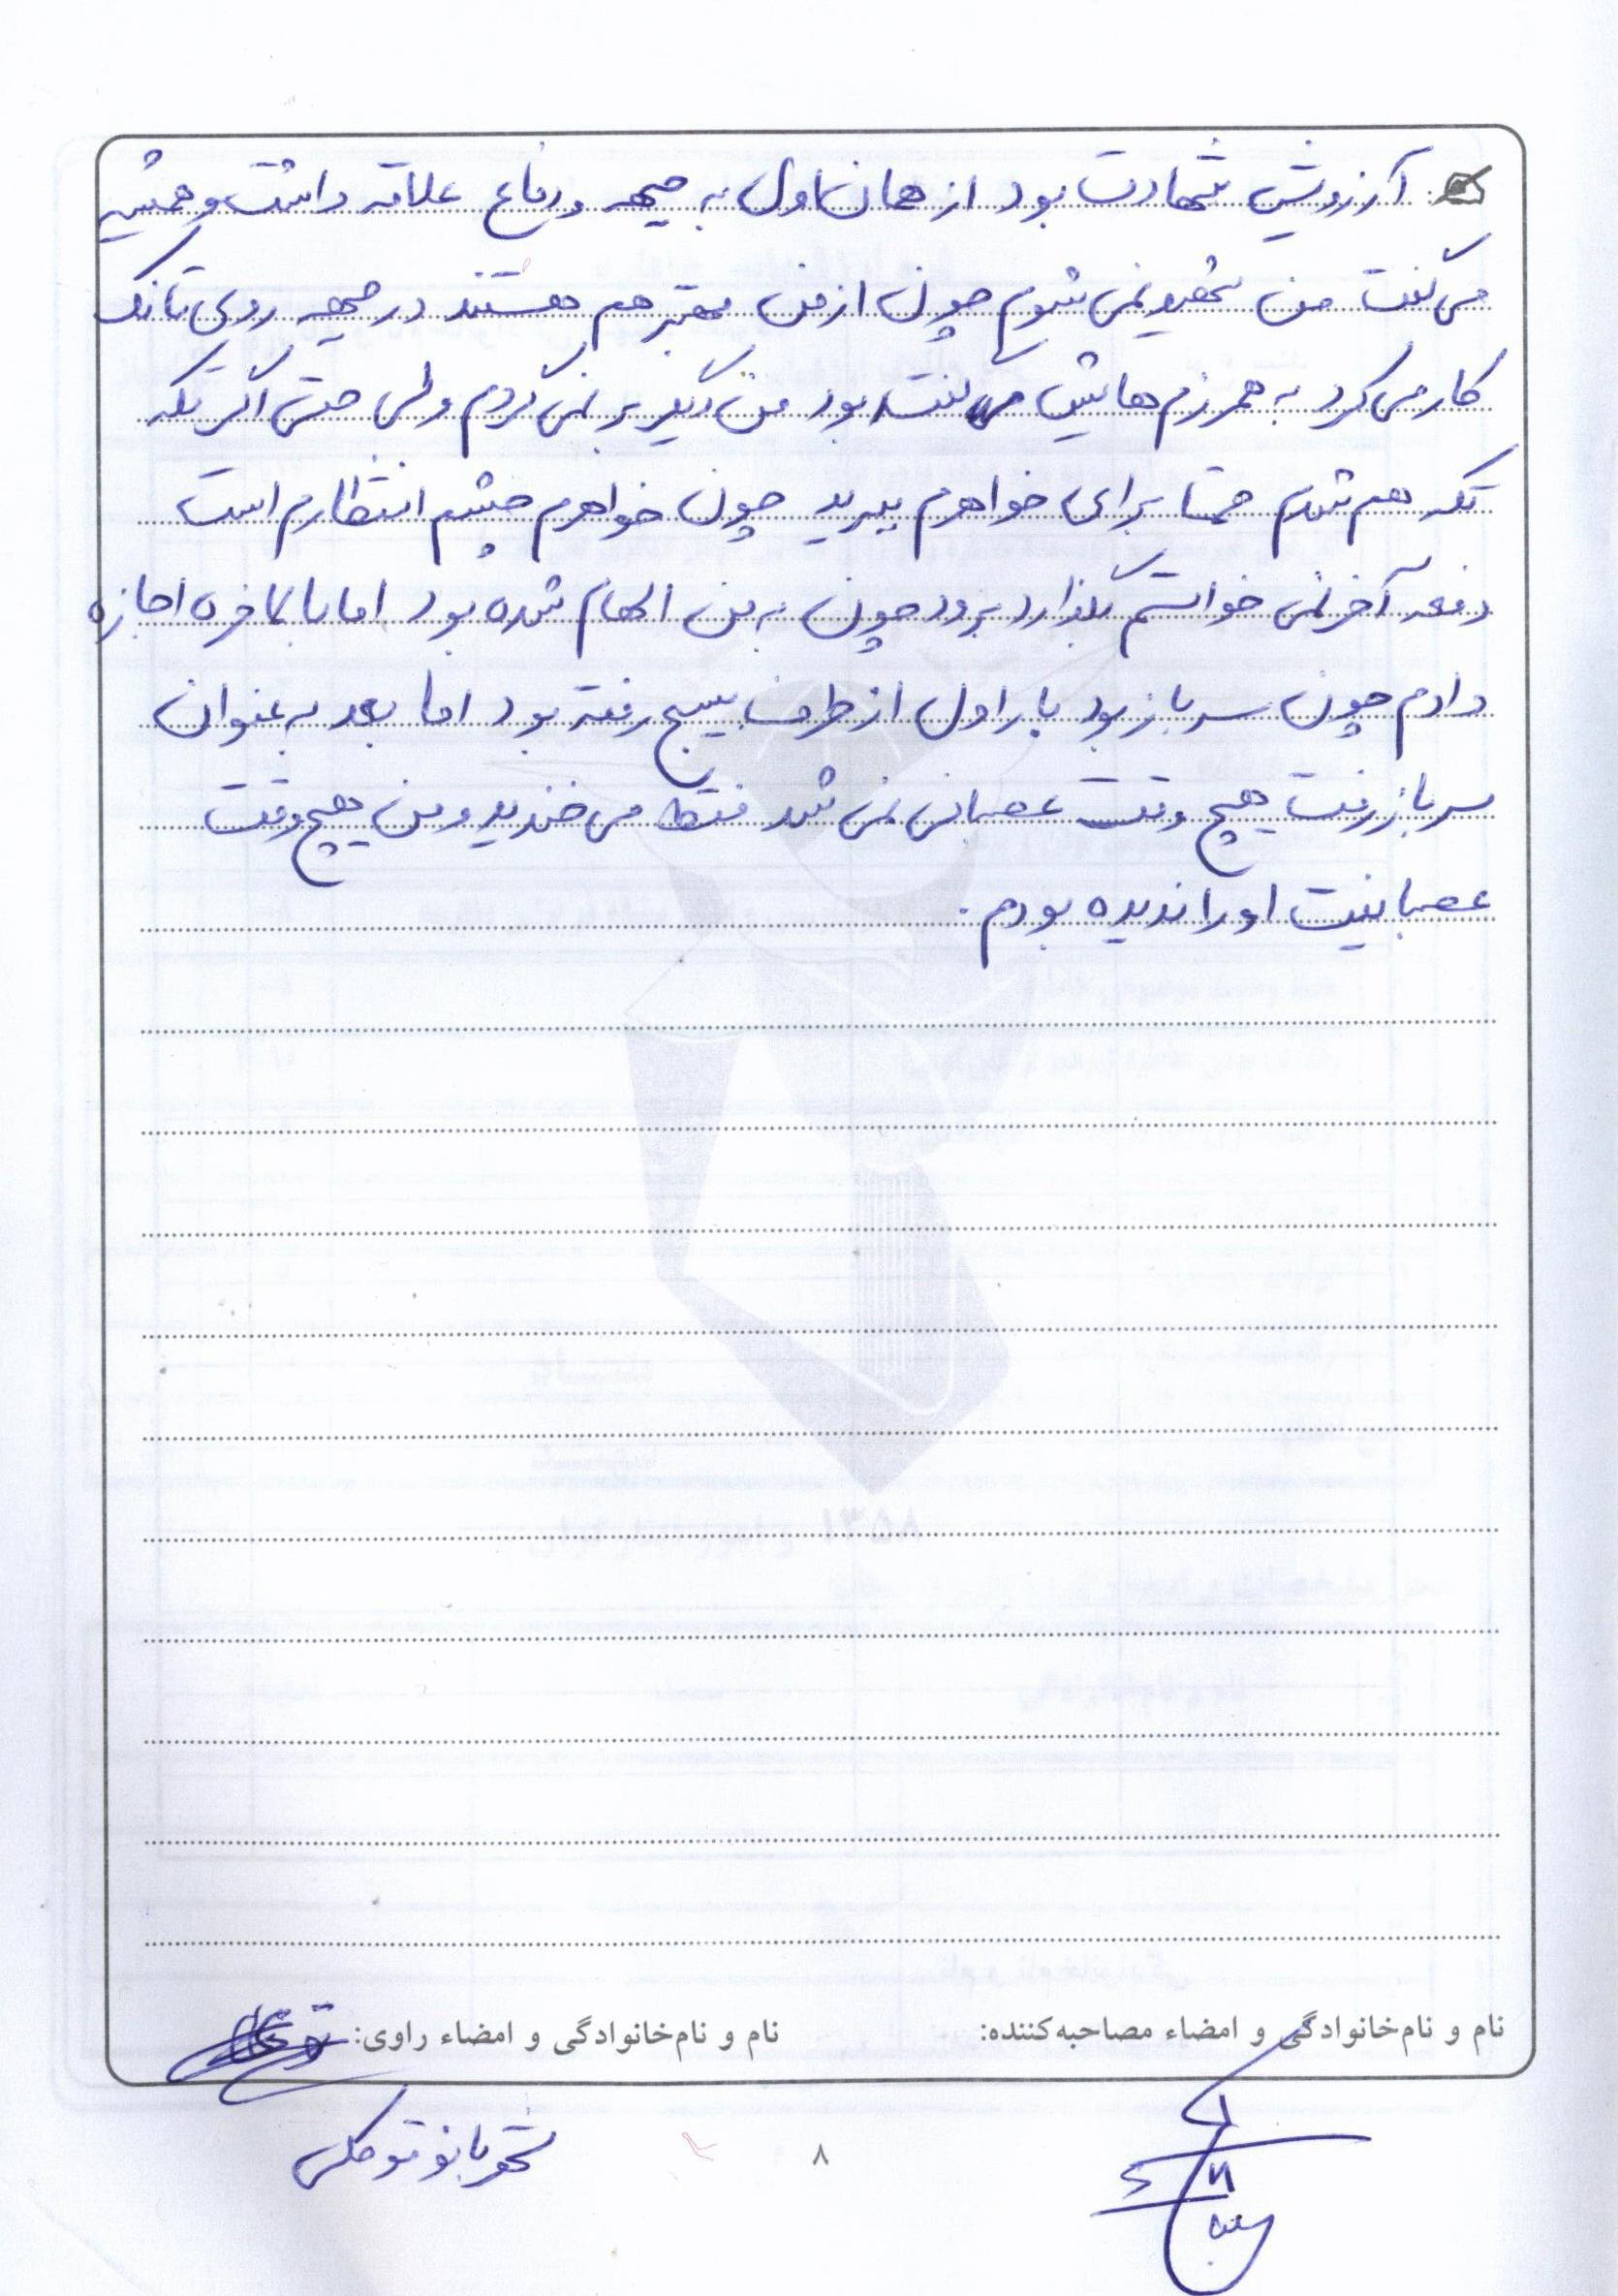 آرزویش شهادت بود از همان اول به جبهه و دفاع علاقه داشت و همیشه
می گفت من شهید نمی شوم چون از من بهتر هم هستند در جبهه روی تانک
کار می کرد به همرزم هایش گفته بود من دیگر بر نمی گردم ولی حتی اگر تکه
تکه هم شدم حتما برای خواهرم ببرید چون خواهرم چشم انتظارم است
دفعه آخر نمی خواستم بگذارد برود چون به من الهام شده بود اما بالاخره اجازه
دادم چون سرباز بود بار اول از طرف بسیج رفته بود اما بعد به عنوان
سرباز رفت هیچ وقت عصبانی نمی شد فقط می خندید و من هیچ وقت
عصبانیت او را ندیده بودم .
نام و نام‌خانوادگی و امضاء مصاحبه‌کننده:
نام و نام‌خانوادگی و امضاء راوی:
توکلی
۸